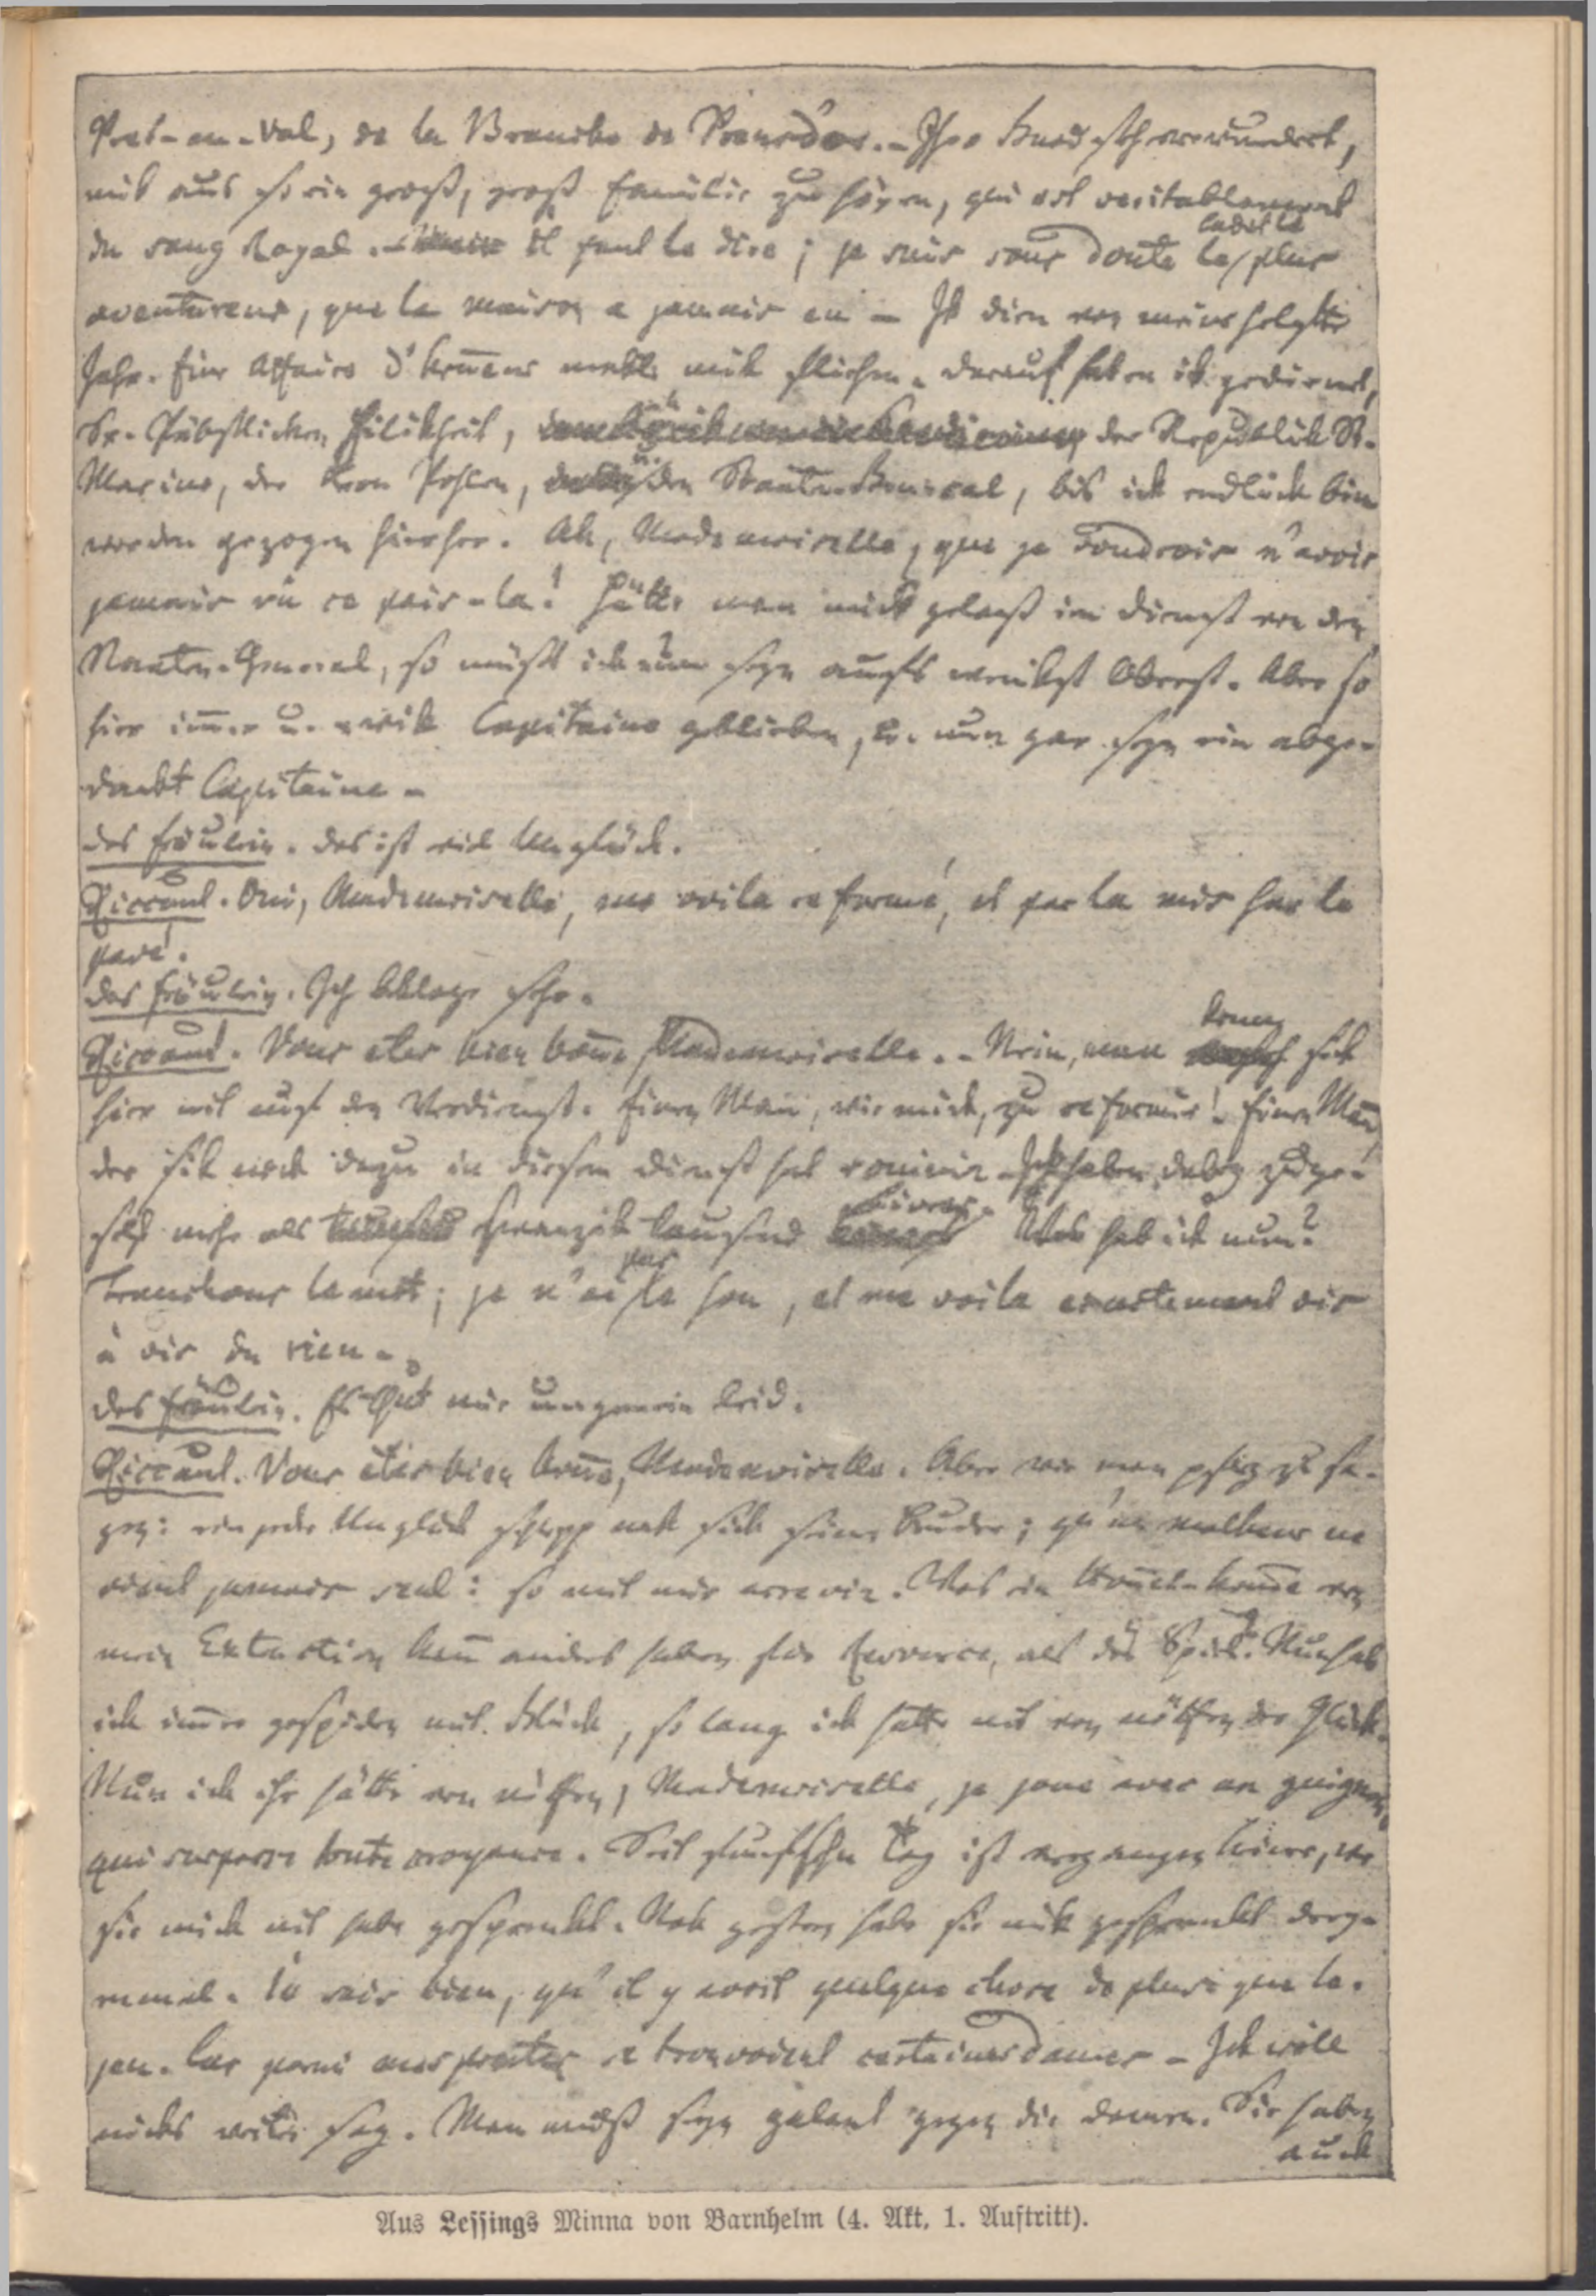 Pret-au-val, de la Branche de Prensd'or. – Ihro Gnad seh verwundert,
mik aus so ein groß, groß Familie zu hören, qui est veritablement
du sang Royal. – il faut le dire; je suis sans doute le cadet le plus
avantureux, que la maison a jamais eu – Ik dien von meiner helfte
Jahr. Eine Affaire d'honneur makte mik fliehen. Darauf haben ik gedienet,
Sr. Päbstlichen Eilikheit, der Republik St.
Marino, der Kron Pohlen, u. den Staaten-General, bis ick endlick bin
worden gezogen hierher. Ah, Mademoiselle, que je voudrois n'avoir
jamais vû ce pais-la! Hätte man mick gelaß im Dienst von den
Staaten-General, so müßt ick nun seyn aufs wenikst Oberst. Aber so
hier immer u. ewik Capitaine geblieben, u. nun gar seyn ein abge-
dankt Capitaine –
das Fräulein. das ist viel Unglück.
Riccaut. Oui, Mademoiselle, me voila reformé, et par la mis sur le
pavé!
das Fräulein. Ich beklage sehr.
Riccaut. Vous etes bien bonne, Mademoiselle. – Nein, man kenn sick
hier nit auf den Verdienst. Einen Mann, wie mick, zu reformir! Einen Mann
der sik nock dazu in diesem Dienst hat rouinir – Ick haben dabey zuge-
setz mehr als swanzik tausend livres. Was hab ick nun?
Tranchons le mot; je n'ai pas le sou, et me voila exactement vis
à vis du rien –
das Fräulein. Es thut mir ungemein leid.
Riccaut. Vous étes bien bonne, Mademoiselle. Aber wie man pfleg zu sa-
gen: ein jeder Unglück schlepp nak sick seine Bruder; qu'un malheur ne
vient jamais seul: so mit mir arrevir. Was ein Honnet-homme von
mein Extraction kann anders haben für ressource, als das Spiel? Nun hab
ick immer gespielen mit Glück, so lang ick hatte nit von nöthen der Glück.
Nun ick ihr hätte von nöthen, Mademoiselle, je joue avec un guignon,
qui surpasse toute croyance. Seit funfsehn Tag ist vergangen keine, wo
sie mick nit habe gesprenkt. Nok gestern habe sie mik gesprenkt drey-
mal. Je sais bien, qu'il y avoit quelque chose de plus que le
jeu. Car parmi mes pontes se trouvoient certaines dames – Ick will
nicks weiter sag. Man muß seyn galant gegen die damen. Sie haben
auck
Aus Lessings Minna von Barnhelm (4. Akt, 1. Auftritt).